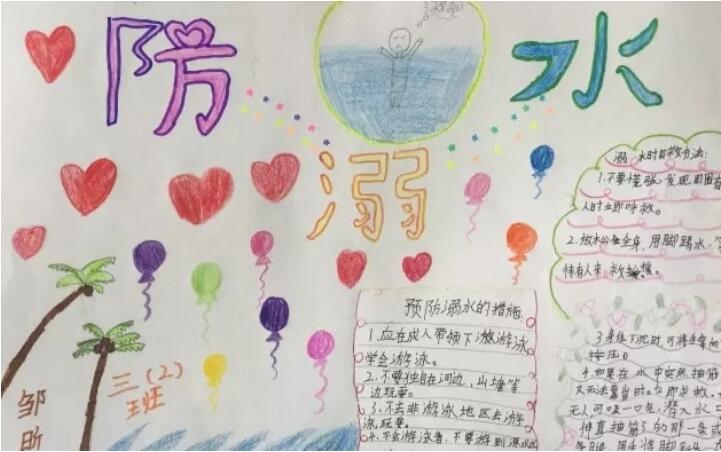 防
水
溺
溺 水时自救方法:
1.不要慌张,发现周围有
人时立即呼救。
2.放松全身,用脚踢水,
待有人来 救援。
3身体下沉时,可将手掌向
按压。
4.如果在水中突然抽筋
又无法靠岸时,立即求救。
无人可吸一口气,潜入水
伸直抽筋的那一条或
用手将脚
预防溺水的措施
1.应在成人带领下游泳
学会游泳。
2.不要独自在河边、山塘等
边玩耍。
3.不去非游泳地区去游
泳玩耍。
4.不会游泳者,不要游到深水区
三(2)
班
邹
昕